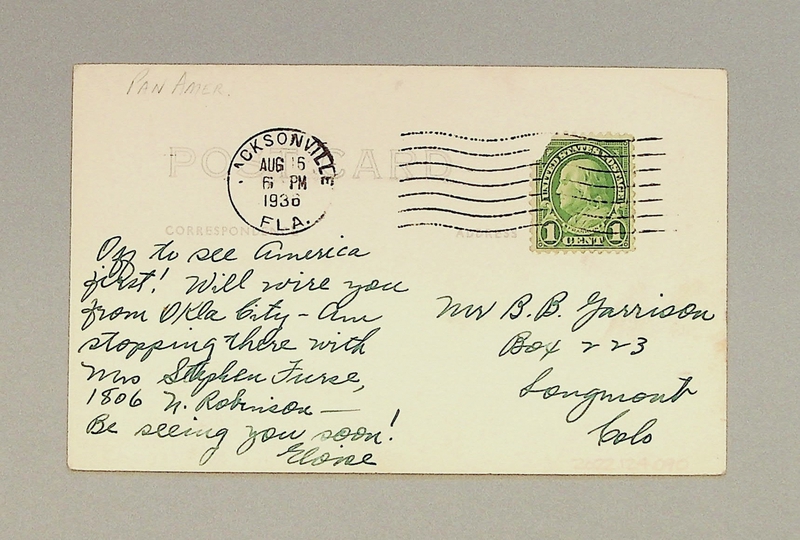 PAN AMER.
POST CARD
JACKSONVILLE
AUG 16
6 PM
1936
FLA.
UNITED STATES POSTAGE
1 CENT 1
CORRESPONDENCE
ADDRESS
Off to see America
first! Will wire you
from Okla City - Am
stopping there with
Mrs Stephen Furse,
1806 N. Robinson —
Be seeing you soon!
Eloise
Mr B. B. Garrison
Box 223
Longmont
Colo